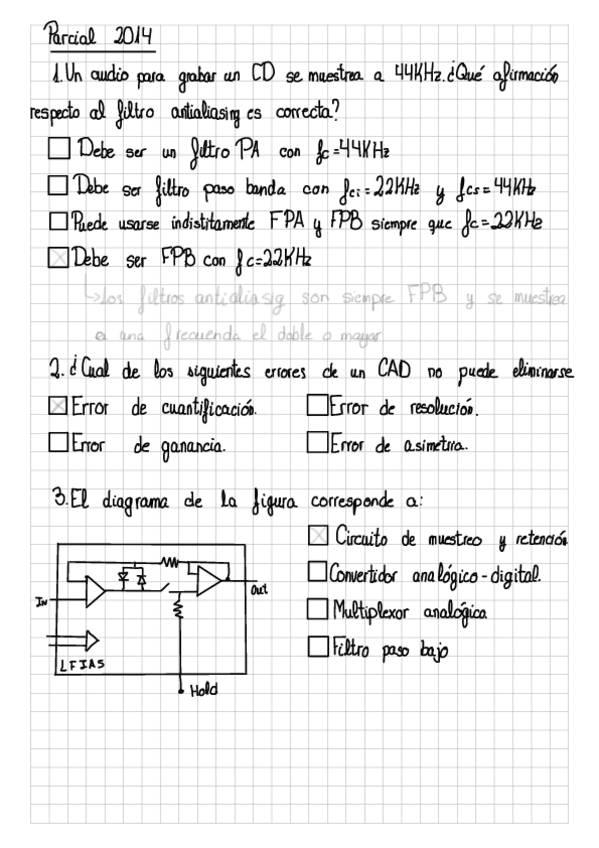 Parcial 2014
1. Un audio para grabar un CD se muestrea a 44KHz. ¿Qué afirmación
respecto al filtro antialiasing es correcta?
Debe ser un filtro PA con fc=44KHz
Debe ser filtro paso banda con fci=22KHz y fcs=44KHz
Puede usarse indistitamente FPA y FPB siempre que fc=22KHz
Debe ser FPB con fc=22KHz
↳los filtros antialiasig son siempre FPB y se muestrea
a una frecuenda el doble o mayor
2. ¿Cual de los siguientes errores de un CAD no puede eliminarse
Error de cuantificación.
Error de resolución.
Error de ganancia.
Error de asimetria.
3. El diagrama de la figura corresponde a:
Circuito de muestreo y retención
Convertidor analógico-digital.
Multiplexor analógico
Filtro paso bajo
In
Out
LFIAS
Hold